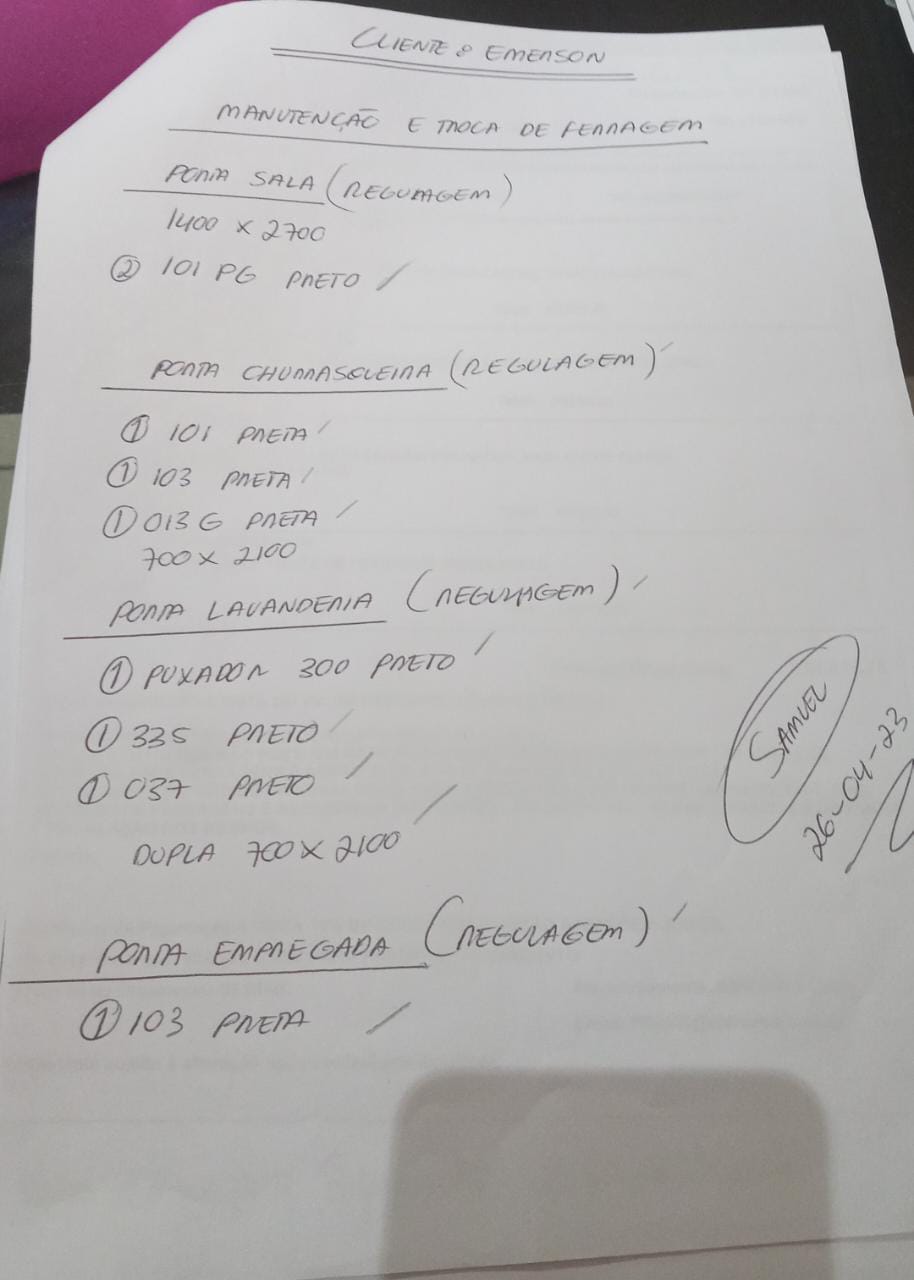 CLIENTE: EMERSON
MANUTENÇÃO E TROCA DE FERRAGEM
PORTA SALA (REGULAGEM)
1400 X 2700
② 101 PG PRETO /
PORTA CHURRASQUEIRA (REGULAGEM) /
① 101 PRETA /
① 103 PRETA /
① 013 G PRETA /
700 X 2100
PORTA LAVANDERIA (REGULAGEM) /
① PUXADOR 300 PRETO /
① 335 PRETO /
① 037 PRETO /
DUPLA 700 X 2100 /
SAMUEL
26-04-23
PORTA EMPREGADA (REGULAGEM) /
① 103 PRETA /